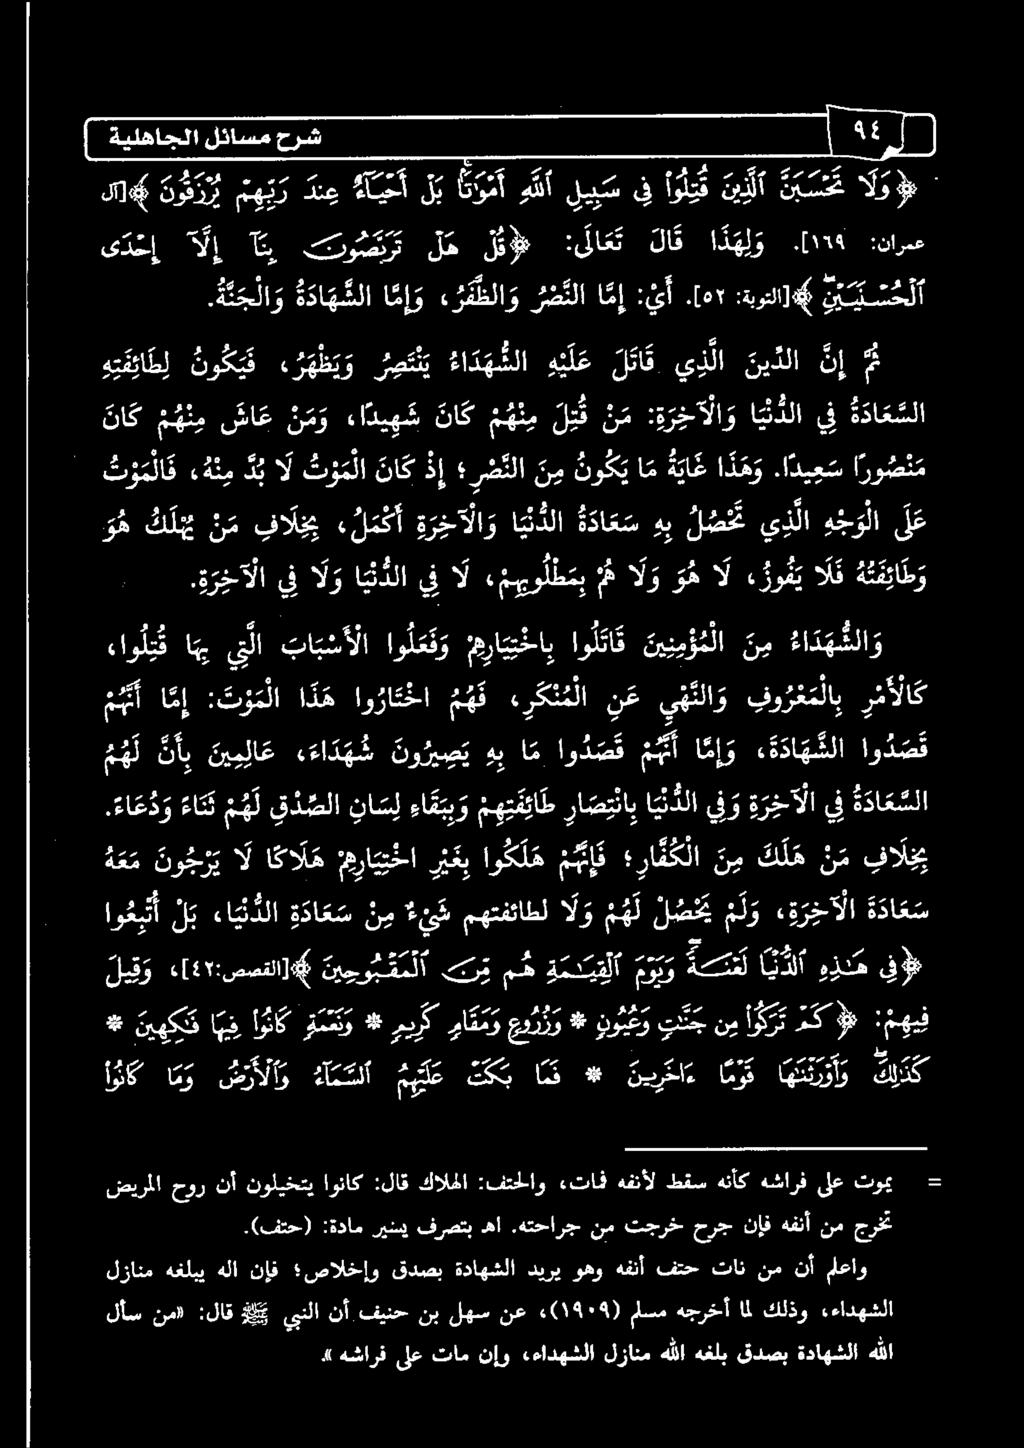 ٩٤
شرح مسائل الجاهلية
﴿وَلَا تَحْسَبَنَّ ٱلَّذِينَ قُتِلُوا۟ فِى سَبِيلِ ٱللَّهِ أَمْوَٰتًۢا بَلْ أَحْيَآءٌ عِندَ رَبِّهِمْ يُرْزَقُونَ﴾[آل
عمران: ١٦٩]. وَلِهَذَا قَالَ تَعَالَى: ﴿قُلْ هَلْ تَرَبَّصُونَ بِنَآ إِلَّآ إِحْدَى
ٱلْحُسْنَيَيْنِ﴾[التوبة: ٥٢]. أَيْ: إِمَّا النَّصْرُ وَالظَّفَرُ، وَإِمَّا الشَّهَادَةُ وَالْجَنَّةُ.
ثُمَّ إِنَّ الدِّينَ الَّذِي قَاتَلَ عَلَيْهِ الشُّهَدَاءُ يَنْتَصِرُ وَيَظْهَرُ، فَيَكُونُ لِطَائِفَتِهِ
السَّعَادَةُ فِي الدُّنْيَا وَالْآخِرَةِ: مَنْ قُتِلَ مِنْهُمْ كَانَ شَهِيدًا، وَمَنْ عَاشَ مِنْهُمْ كَانَ
مَنْصُورًا سَعِيدًا. وَهَذَا غَايَةُ مَا يَكُونُ مِنَ النَّصْرِ؛ إِذْ كَانَ الْمَوْتُ لَا بُدَّ مِنْهُ، فَالْمَوْتُ
عَلَى الْوَجْهِ الَّذِي تَحْصُلُ بِهِ سَعَادَةُ الدُّنْيَا وَالْآخِرَةِ أَكْمَلُ، بِخِلَافِ مَنْ يَهْلِكُ هُوَ
وَطَائِفَتُهُ فَلَا يَفُوزُ، لَا هُوَ وَلَا هُمْ بِمَطْلُوبِهِمْ، لَا فِي الدُّنْيَا وَلَا فِي الْآخِرَةِ.
وَالشُّهَدَاءُ مِنَ الْمُؤْمِنِينَ قَاتَلُوا بِاخْتِيَارِهِمْ وَفَعَلُوا الْأَسْبَابَ الَّتِي بِهَا قُتِلُوا،
كَالْأَمْرِ بِالْمَعْرُوفِ وَالنَّهْيِ عَنِ الْمُنْكَرِ، فَهُمُ اخْتَارُوا هَذَا الْمَوْتَ: إِمَّا أَنَّهُمْ
قَصَدُوا الشَّهَادَةَ، وَإِمَّا أَنَّهُمْ قَصَدُوا مَا بِهِ يَصِيرُونَ شُهَدَاءَ، عَالِمِينَ بِأَنَّ لَهُمُ
السَّعَادَةُ فِي الْآخِرَةِ وَفِي الدُّنْيَا بِانْتِصَارِ طَائِفَتِهِمْ وَبِبَقَاءِ لِسَانِ الصِّدْقِ لَهُمْ ثَنَاءً وَدُعَاءً.
بِخِلَافِ مَنْ هَلَكَ مِنَ الْكُفَّارِ؛ فَإِنَّهُمْ هَلَكُوا بِغَيْرِ اخْتِيَارِهِمْ هَلَاكًا لَا يَرْجُونَ مَعَهُ
سَعَادَةَ الْآخِرَةِ، وَلَمْ يَحْصُلْ لَهُمْ وَلَا لطائفتهم شَيْءٌ مِنْ سَعَادَةِ الدُّنْيَا، بَلْ أُتْبِعُوا
﴿فِى هَـٰذِهِ ٱلدُّنْيَا لَعْنَةً وَيَوْمَ ٱلْقِيَـٰمَةِ هُم مِّنَ ٱلْمَقْبُوحِينَ﴾[القصص:٤٢]، وَقِيلَ
فِيهِمْ: ﴿كَمْ تَرَكُوا۟ مِن جَنَّـٰتٍ وَعُيُونٍ * وَزُرُوعٍ وَمَقَامٍ كَرِيمٍ * وَنَعْمَةٍ كَانُوا۟ فِيهَا فَـٰكِهِينَ *
كَذَٰلِكَ وَأَوْرَثْنَـٰهَا قَوْمًا ءَاخَرِينَ * فَمَا بَكَتْ عَلَيْهِمُ ٱلسَّمَآءُ وَٱلْأَرْضُ وَمَا كَانُوا۟
= يموت على فراشه كأنه سقط لأنفه فمات، والحتف: الهلاك قال: كانوا يتخيلون أن روح المريض
تخرج من أنفه فإن جرح خرجت من جراحته. اهـ بتصرف يسير مادة: (حتف).
واعلم أن من مات حتف أنفه وهو يريد الشهادة بصدق وإخلاص؛ فإن الله يبلغه منازل
الشهداء، وذلك لما أخرجه مسلم (١٩٠٩)، عن سهل بن حنيف أن النبي ﷺ قال: «من سأل
الله الشهادة بصدق بلغه الله منازل الشهداء، وإن مات على فراشه».